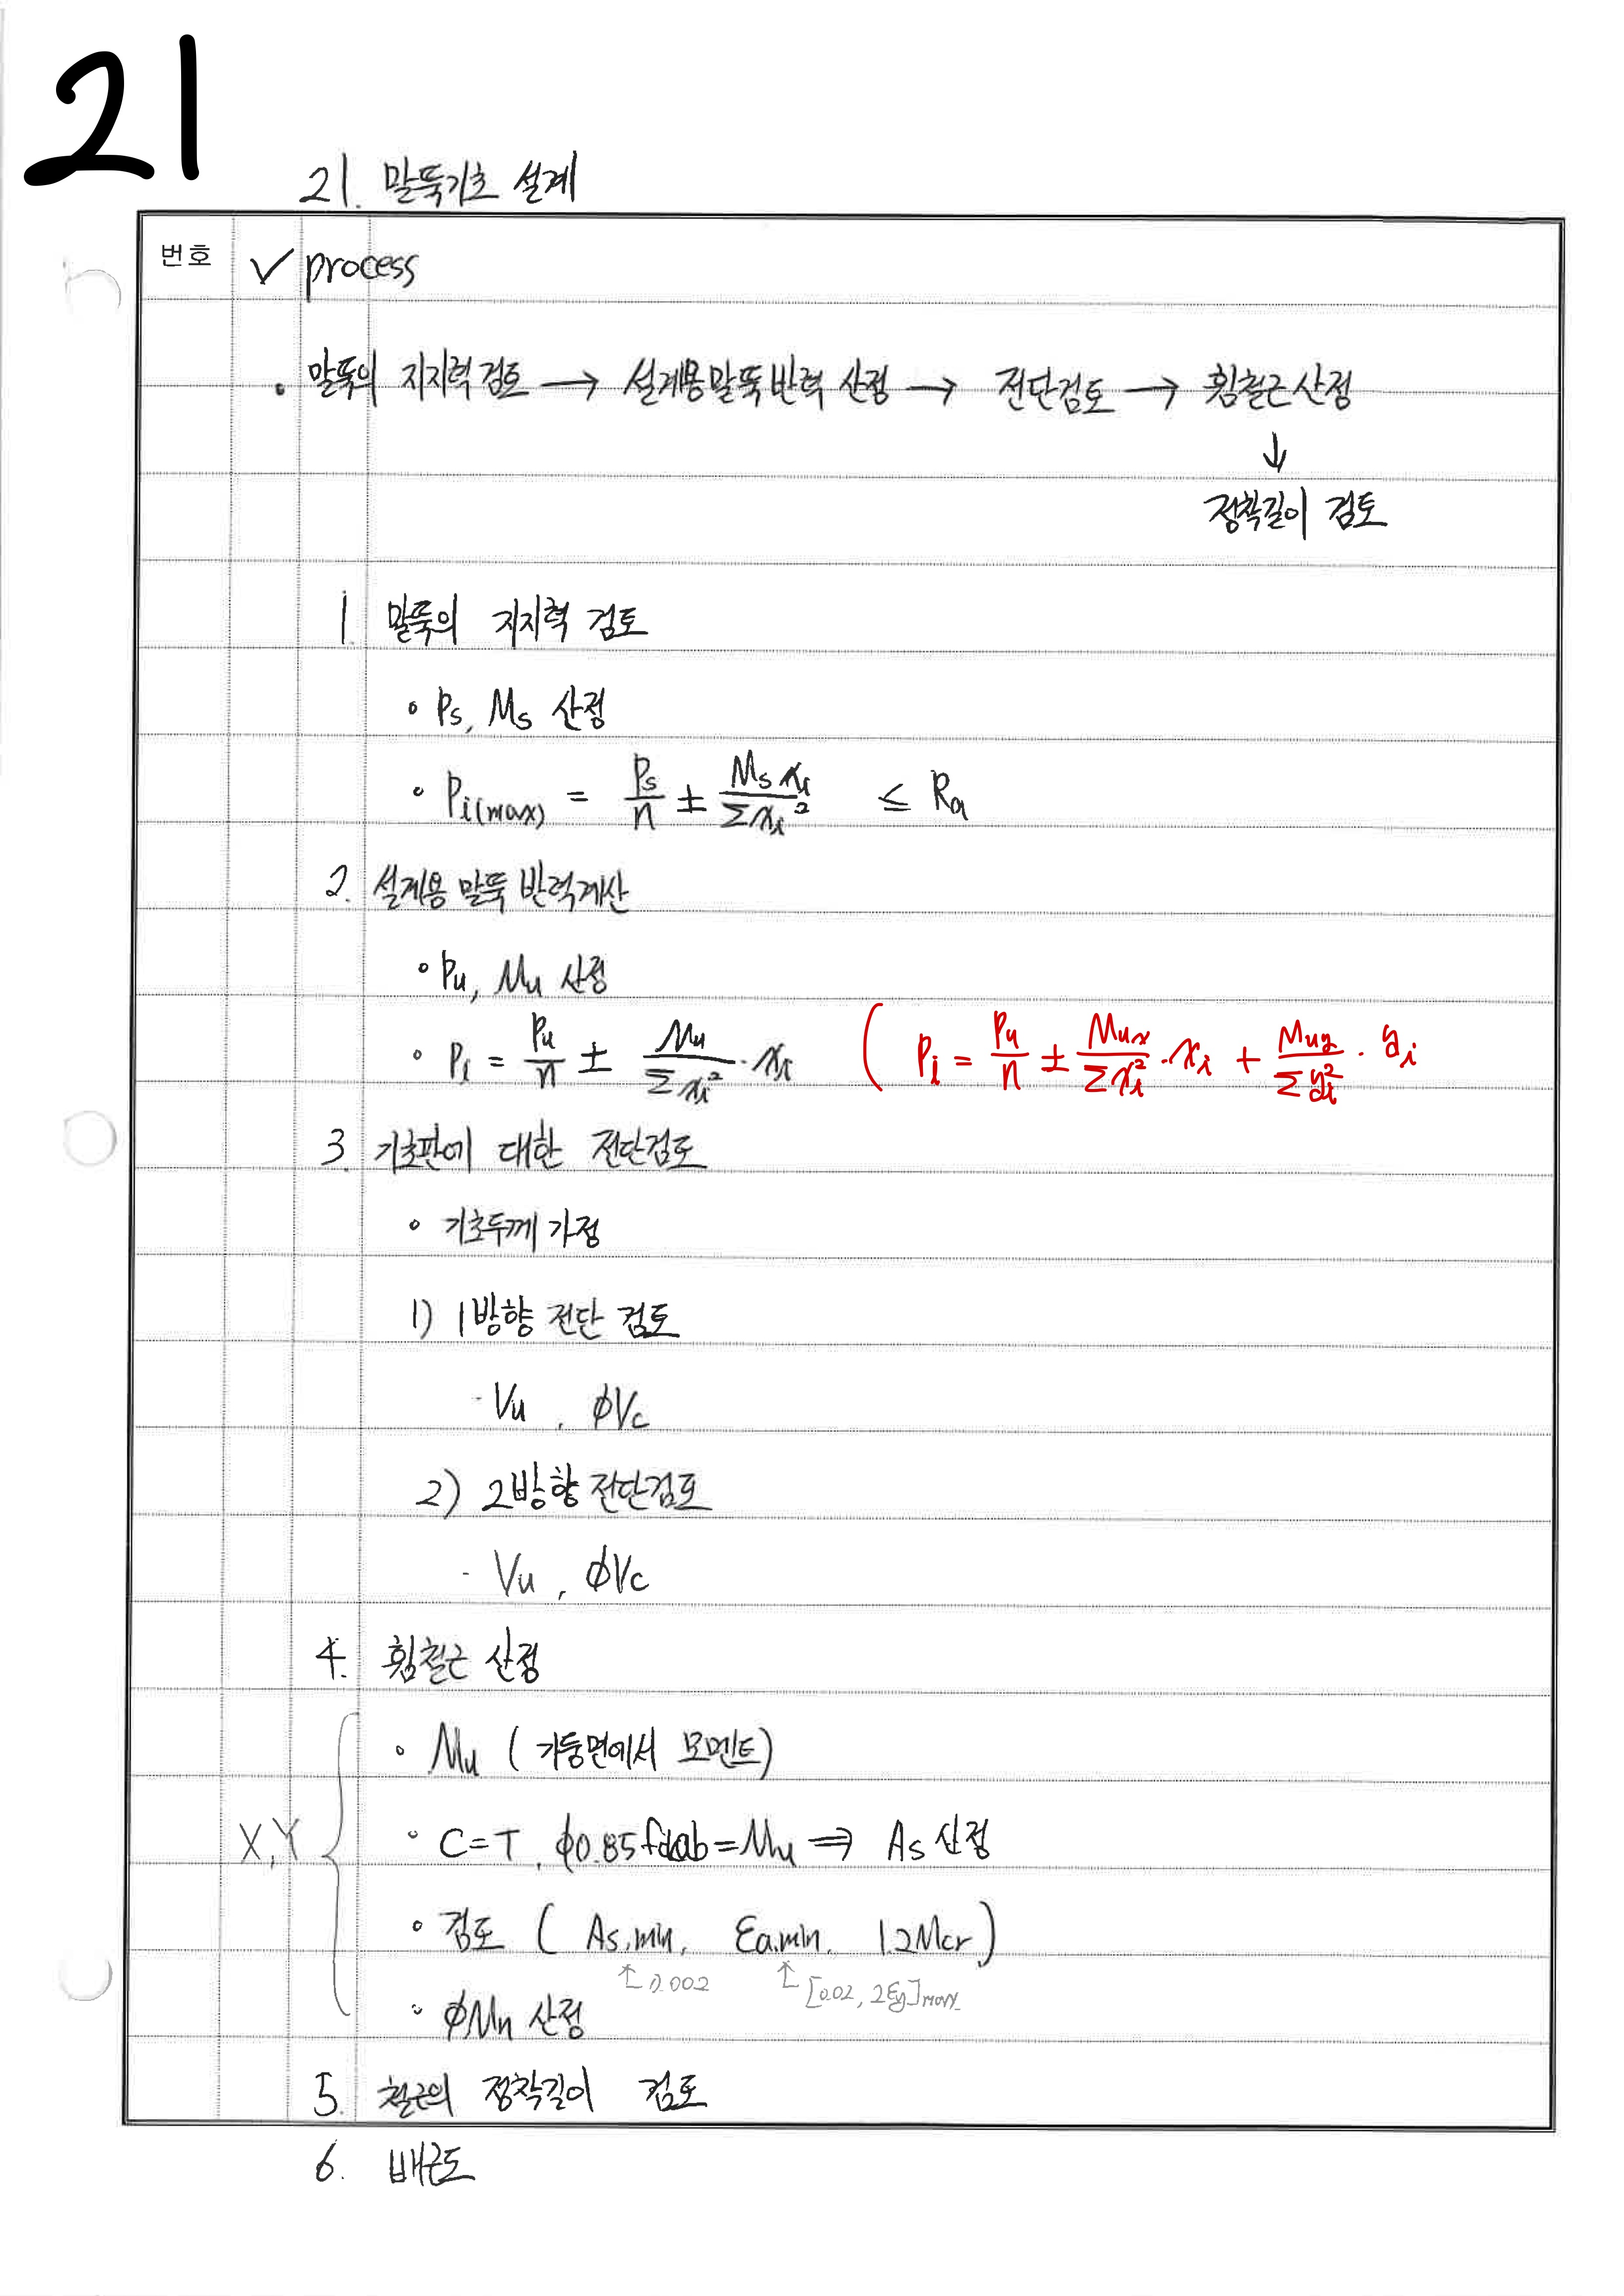 21
21. 말뚝기초 설계
번호 ✓ process
• 말뚝의 지지력 검토 → 설계용 말뚝 반력 산정 → 전단검토 → 휨철근 산정
↓
정착길이 검토
1. 말뚝의 지지력 검토
• Ps, Ms 산정
• Pi(max) = Ps/n ± Ms xi/Σxi² ≤ Ra
2. 설계용 말뚝 반력계산
• Pu, Mu 산정
• Pi = Pu/n ± Mu/Σxi² · xi ( Pi = Pu/n ± Mux/Σxi² · xi + Muy/Σyi² · yi
3. 기초판에 대한 전단검토
• 기초두께 가정
1) 1방향 전단 검토
- Vu, φVc
2) 2방향 전단검토
- Vu, φVc
4. 휨철근 산정
• Mu (기둥면에서 모멘트)
X,Y { • C=T, φ0.85 = Mu ⇒ As 산정
• 검토 ( As,min, εa,min, 1.2Mcr )
↑ 0.002 ↑ [0.02, 2εy]max
• φMn 산정
5. 철근의 정착길이 검토
6. 배근도